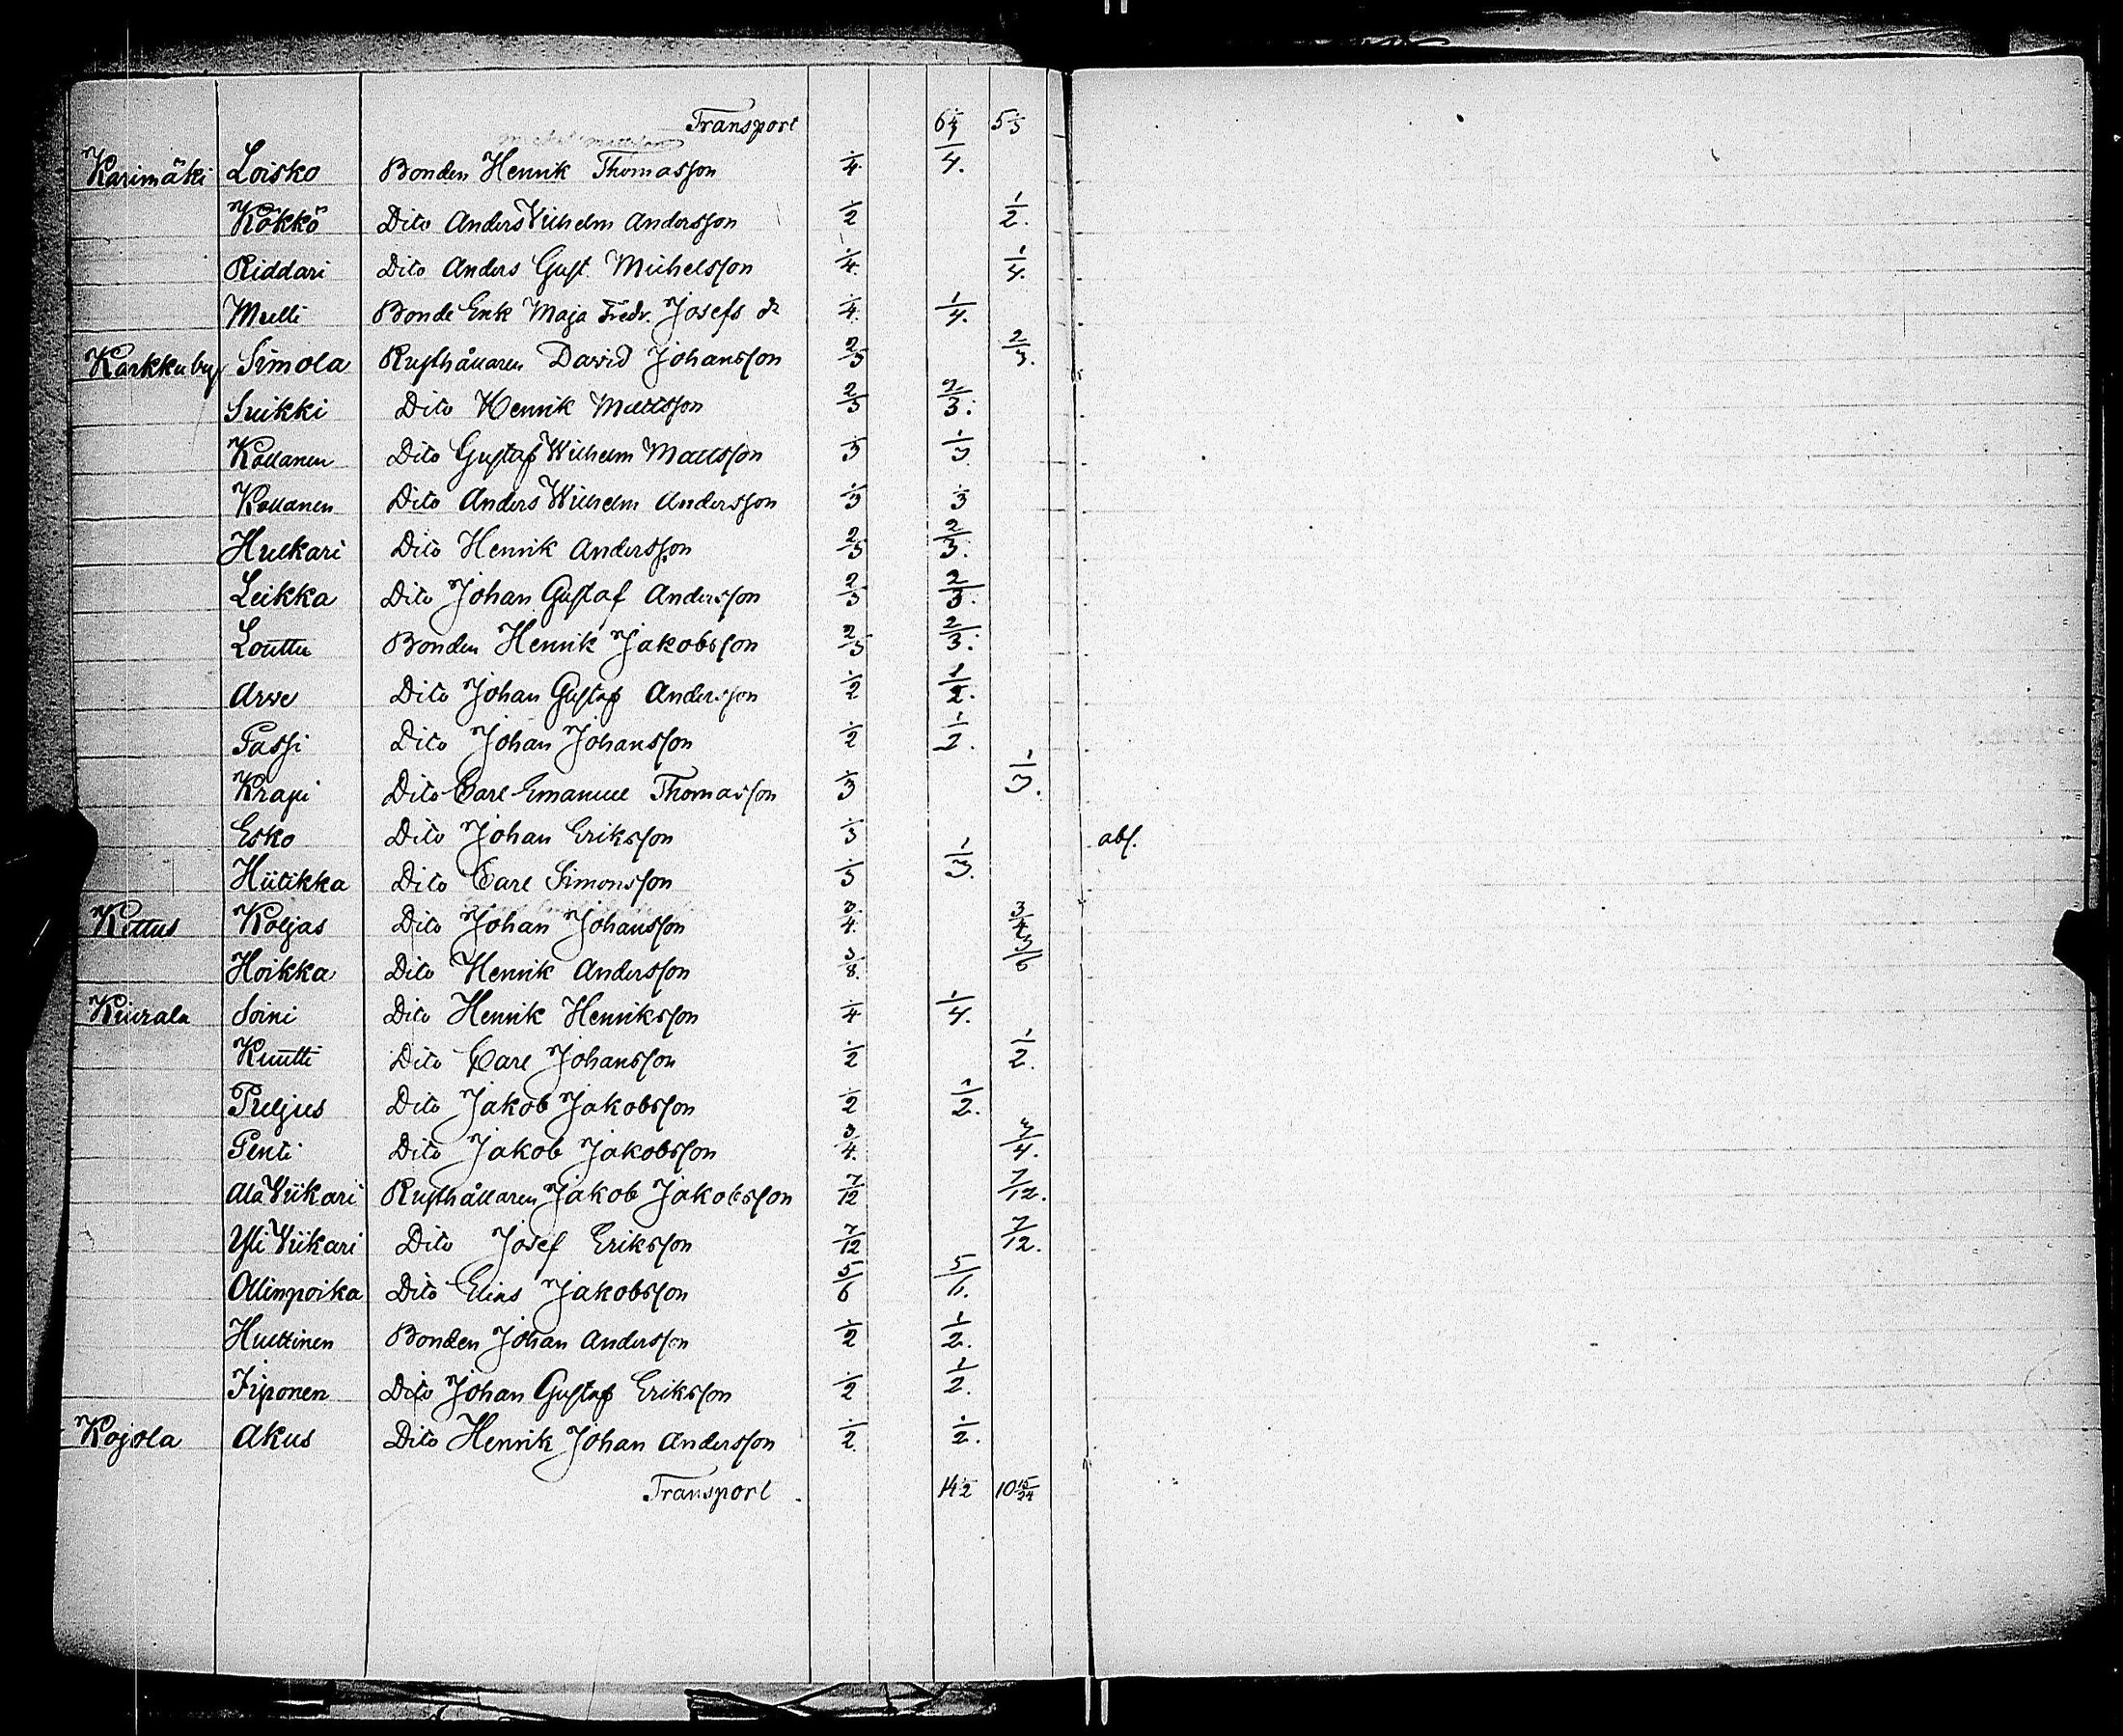 Transport 6 1/4 5 1/3
Karimäki Loisko Bonden Henrik Thomasson 1/4 1/4.
Kökkö Dito Anders Vilhelm Andersson 1/2 1/2.
Riddari Dito Anders Gust. Michelsson 1/4. 1/4.
Multi Bonde Enk Maja Fredr. Josefs dr 1/4. 1/4.
Karkku by Simola Rusthållaren David Johansson 2/3 2/3.
Suikki Dito Henrik Mattsson 2/3 2/3.
Kollanen Dito Gustaf Wilhelm Mattsson 1/3 1/3
Kollanen Dito Anders Wilhelm Andersson 1/3 1/3
Hulkari Dito Henrik Andersson 2/3 2/3.
Leikka Dito Johan Gustaf Andersson 2/3 2/3.
Louttu Bonden Henrik Jakobsson 2/3 2/3.
Arve Dito Johan Gustaf Andersson 1/2 1/2.
Passi Dito Johan Johansson 1/2 1/2.
Krapi Dito Carl Emanuel Thomasson 1/3 1/3.
Esko Dito Johan Eriksson 1/3 abs.
Hiitikka Dito Carl Simonsson 1/3 1/3.
Kettus Koljas Dito Johan Johansson 3/4. 3/4
Hoikka Dito Henrik Andersson 3/8. 3/8
Keurala Soini Dito Henrik Henriksson 1/4 1/4.
Kuutti Dito Carl Johansson 1/2 1/2.
Puljus Dito Jakob Jakobsson 1/2 1/2.
Penti Dito Jakob Jakobsson 3/4. 3/4.
Ala Viikari Rusthållaren Jakob Jakobsson 7/12 7/12.
Yli Viikari Dito Josef Eriksson 7/12 7/12.
Ollinpoika Dito Elias Jakobsson 5/6 5/6.
Huttinen Bonden Johan Andersson 1/2 1/2.
Iiponen Dito Johan Gustaf Eriksson 1/2 1/2.
Kojola Akus Dito Henrik Johan Andersson 1/2. 1/2.
Transport 14 1/2 10 15/24